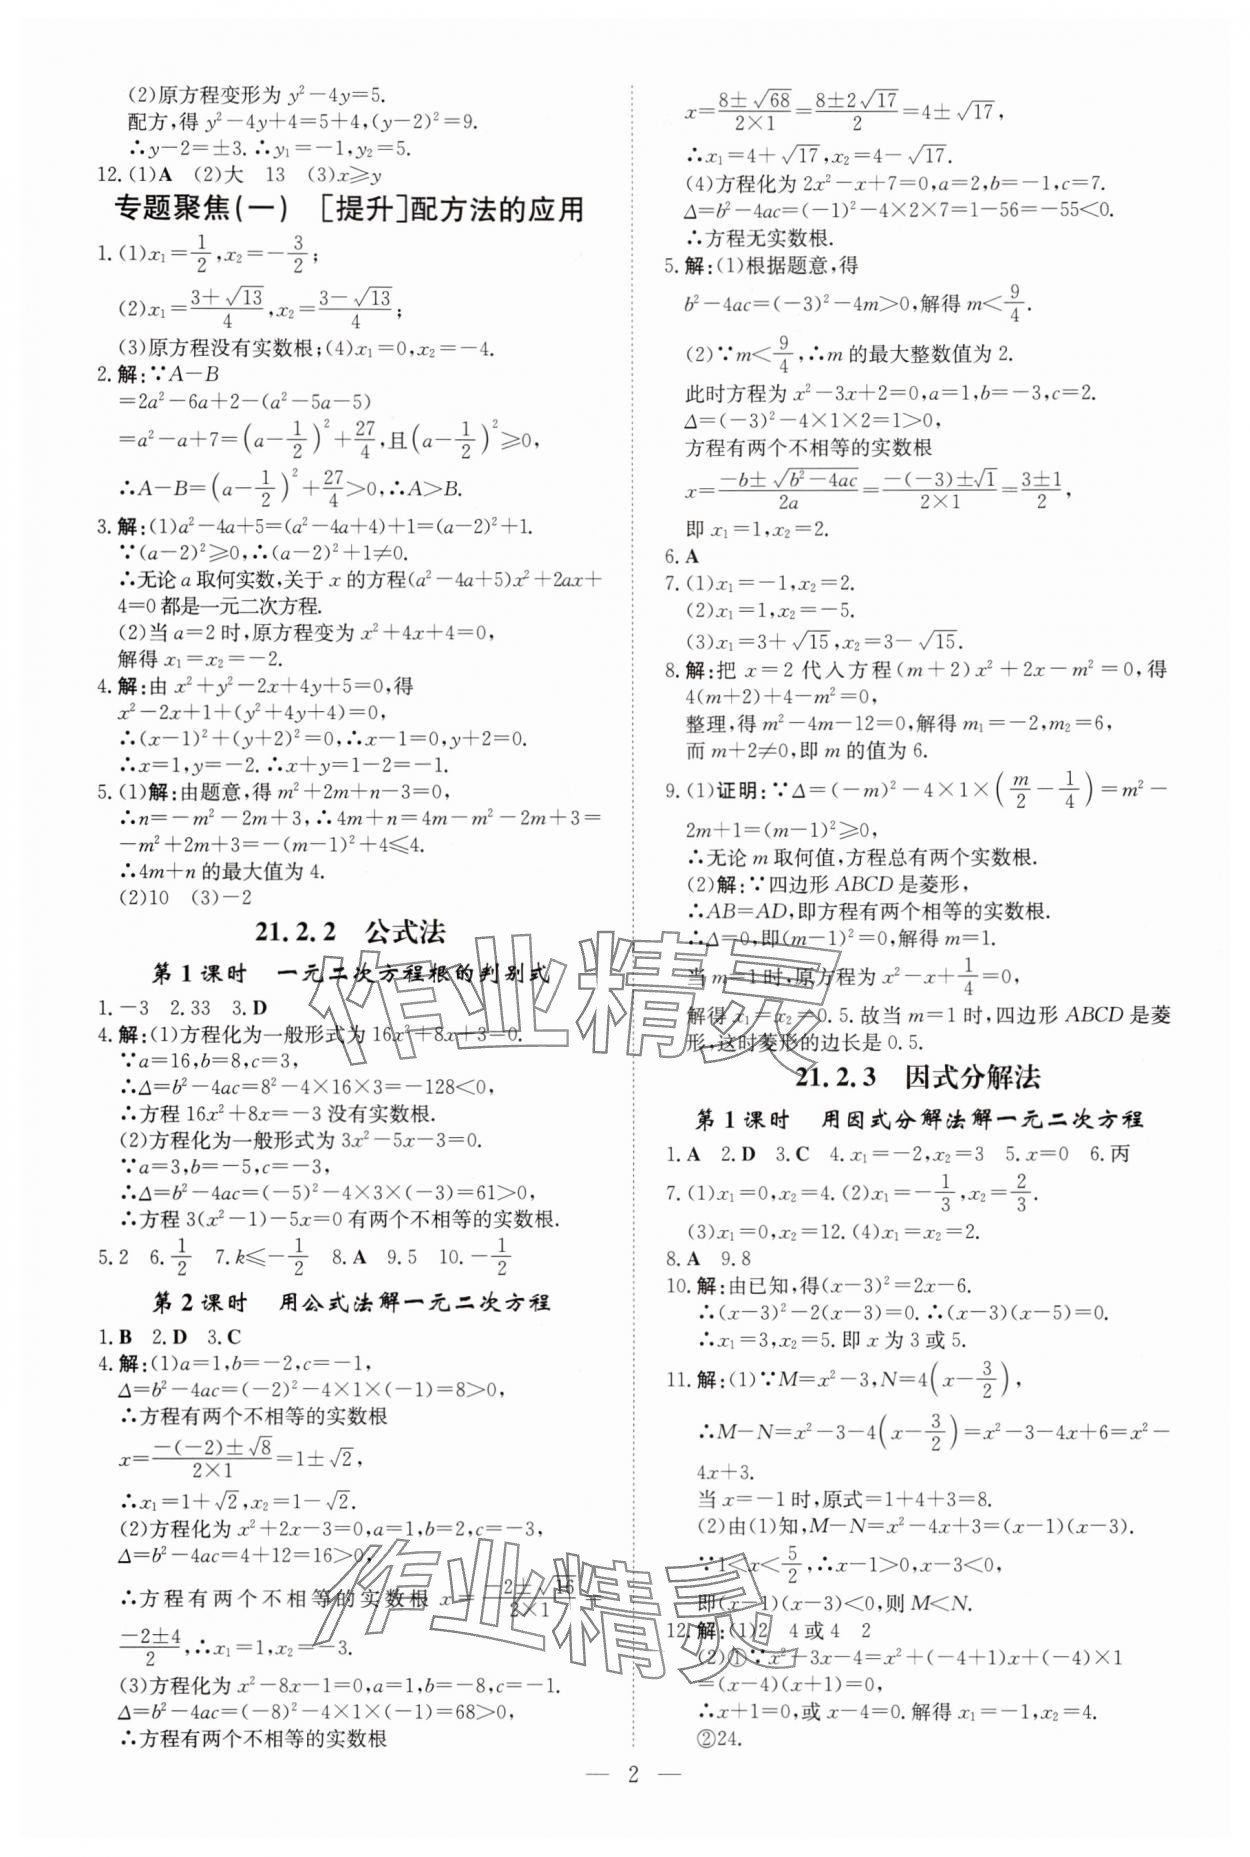 (2)原方程变形为 y²-4y=5.
配方,得 y²-4y+4=5+4,(y-2)²=9.
∴y-2=±3.∴y₁=-1,y₂=5.
12.(1)A (2)大 13 (3)x≥y
专题聚焦(一) [提升]配方法的应用
1.(1)x₁=1/2,x₂=-3/2;
(2)x₁=(3+√13)/4,x₂=(3-√13)/4;
(3)原方程没有实数根;(4)x₁=0,x₂=-4.
2.解:∵A-B
=2a²-6a+2-(a²-5a-5)
=a²-a+7=(a-1/2)²+27/4,且(a-1/2)²≥0,
∴A-B=(a-1/2)²+27/4>0,∴A>B.
3.解:(1)a²-4a+5=(a²-4a+4)+1=(a-2)²+1.
∵(a-2)²≥0,∴(a-2)²+1≠0.
∴无论 a 取何实数,关于 x 的方程(a²-4a+5)x²+2ax+
4=0 都是一元二次方程.
(2)当 a=2 时,原方程变为 x²+4x+4=0,
解得 x₁=x₂=-2.
4.解:由 x²+y²-2x+4y+5=0,得
x²-2x+1+(y²+4y+4)=0,
∴(x-1)²+(y+2)²=0,∴x-1=0,y+2=0.
∴x=1,y=-2.∴x+y=1-2=-1.
5.(1)解:由题意,得 m²+2m+n-3=0,
∴n=-m²-2m+3,∴4m+n=4m-m²-2m+3=
-m²+2m+3=-(m-1)²+4≤4.
∴4m+n 的最大值为 4.
(2)10 (3)-2
21.2.2 公式法
第 1 课时 一元二次方程根的判别式
1.-3 2.33 3.D
4.解:(1)方程化为一般形式为 16x²+8x+3=0.
∵a=16,b=8,c=3,
∴Δ=b²-4ac=8²-4×16×3=-128<0.
∴方程 16x²+8x=-3 没有实数根.
(2)方程化为一般形式为 3x²-5x-3=0.
∵a=3,b=-5,c=-3,
∴Δ=b²-4ac=(-5)²-4×3×(-3)=61>0,
∴方程 3(x²-1)-5x=0 有两个不相等的实数根.
5.2 6.1/2 7.k≤-1/2 8.A 9.5 10.-1/2
第 2 课时 用公式法解一元二次方程
1.B 2.D 3.C
4.解:(1)a=1,b=-2,c=-1,
Δ=b²-4ac=(-2)²-4×1×(-1)=8>0,
∴方程有两个不相等的实数根
x=(-(-2)±√8)/(2×1)=1±√2,
∴x₁=1+√2,x₂=1-√2.
(2)方程化为 x²+2x-3=0,a=1,b=2,c=-3,
Δ=b²-4ac=4+12=16>0,
∴方程有两个不相等的实数根 x=(-2±√16)/(2×1)=
(-2±4)/2,∴x₁=1,x₂=-3.
(3)方程化为 x²-8x-1=0,a=1,b=-8,c=-1.
Δ=b²-4ac=(-8)²-4×1×(-1)=68>0,
∴方程有两个不相等的实数根
x=(8±√68)/(2×1)=(8±2√17)/2=4±√17,
∴x₁=4+√17,x₂=4-√17.
(4)方程化为 2x²-x+7=0,a=2,b=-1,c=7.
Δ=b²-4ac=(-1)²-4×2×7=1-56=-55<0.
∴方程无实数根.
5.解:(1)根据题意,得
b²-4ac=(-3)²-4m>0,解得 m<9/4.
(2)∵m<9/4,∴m 的最大整数值为 2.
此时方程为 x²-3x+2=0,a=1,b=-3,c=2.
Δ=(-3)²-4×1×2=1>0,
方程有两个不相等的实数根
x=(-b±√(b²-4ac))/2a=(-(-3)±√1)/(2×1)=(3±1)/2,
即 x₁=1,x₂=2.
6.A
7.(1)x₁=-1,x₂=2.
(2)x₁=1,x₂=-5.
(3)x₁=3+√15,x₂=3-√15.
8.解:把 x=2 代入方程(m+2)x²+2x-m²=0,得
4(m+2)+4-m²=0,
整理,得 m²-4m-12=0,解得 m₁=-2,m₂=6,
而 m+2≠0,即 m 的值为 6.
9.(1)证明:∵Δ=(-m)²-4×1×(m/2-1/4)=m²-
2m+1=(m-1)²≥0,
∴无论 m 取何值,方程总有两个实数根.
(2)解:∵四边形 ABCD 是菱形,
∴AB=AD,即方程有两个相等的实数根.
∴Δ=0,即(m-1)²=0,解得 m=1.
当 m=1 时,原方程为 x²-x+1/4=0,
解得 x₁=x₂=0.5.故当 m=1 时,四边形 ABCD 是菱
形,这时菱形的边长是 0.5.
21.2.3 因式分解法
第 1 课时 用因式分解法解一元二次方程
1.A 2.D 3.C 4.x₁=-2,x₂=3 5.x=0 6.丙
7.(1)x₁=0,x₂=4.(2)x₁=-1/3,x₂=2/3.
(3)x₁=0,x₂=12.(4)x₁=x₂=2.
8.A 9.8
10.解:由已知,得(x-3)²=2x-6.
∴(x-3)²-2(x-3)=0.∴(x-3)(x-5)=0.
∴x₁=3,x₂=5.即 x 为 3 或 5.
11.解:(1)∵M=x²-3,N=4(x-3/2),
∴M-N=x²-3-4(x-3/2)=x²-3-4x+6=x²-
4x+3.
当 x=-1 时,原式=1+4+3=8.
(2)由(1)知,M-N=x²-4x+3=(x-1)(x-3).
∵1<x<5/2,∴x-1>0,x-3<0,
即(x-1)(x-3)<0,则 M<N.
12.解:(1)2 4 或 4 2
(2)①∵x²-3x-4=x²+(-4+1)x+(-4)×1
=(x-4)(x+1)=0,
∴x+1=0,或 x-4=0.解得 x₁=-1,x₂=4.
②24.
作业精灵
作业精灵
— 2 —